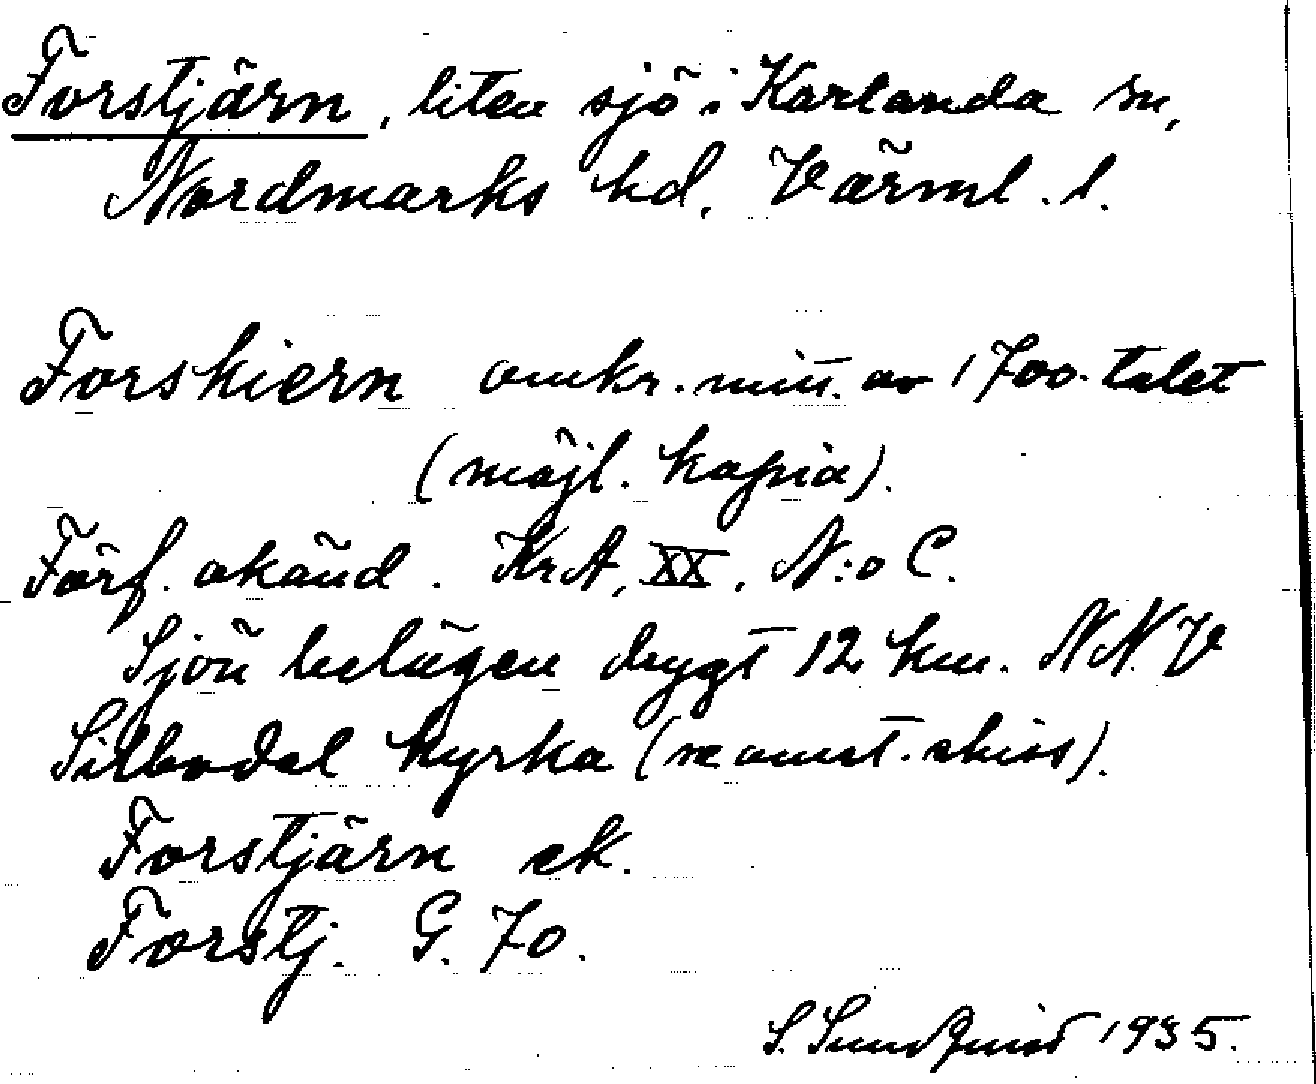 Forstjärn, liten sjö i Karlanda sn,
Nordmarks hd. Värml. l.
Forskiern omkr. mitt. av 1700-talet
(möjl. kopia).
Förf. okänd. KrA, XX, N:o C.
Sjön belägen drygt 12 km. N.N.V
Silbodal kyrka (se omst. skiss).
Forstjärn ek.
Forstj. G. 70.
S. Sundquist 1935.